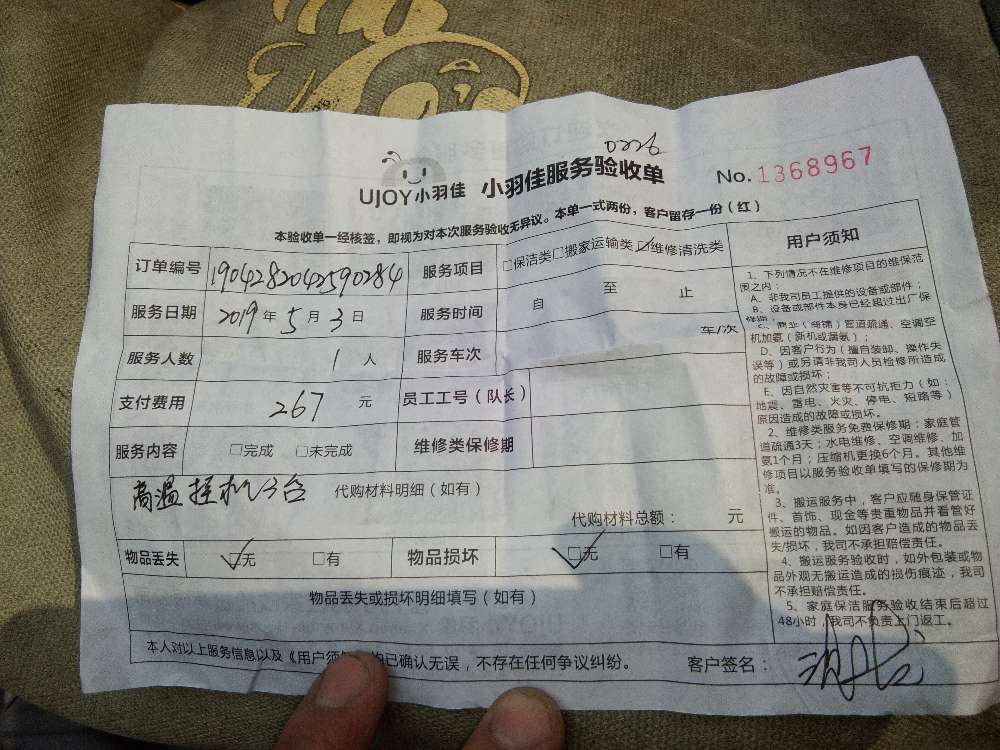 0226
UJOY小羽佳 小羽佳服务验收单 No.1368967
本验收单一经核签，即视为对本次服务验收无异议。本单一式两份，客户留存一份（红）
订单编号 1904282042590284 服务项目 □保洁类□搬家运输类☑维修清洗类
服务日期 2019年5月3日 服务时间 自 至 止
服务人数 1人 服务车次 车/次
支付费用 267元 员工工号（队长）
服务内容 □完成 □未完成 维修类保修期
高温挂机3台 代购材料明细（如有）
代购材料总额： 元
物品丢失 ☑无 □有 物品损坏 ☑无 □有
物品丢失或损坏明细填写（如有）
本人对以上服务信息以及《用户须 已确认无误，不存在任何争议纠纷。 客户签名：
用户须知
1、下列情况不在维修项目的维保范
围之内：
A、非我司员工提供的设备或部件；
B、设备或部件本身已经超过出厂保
修期；
C、商业（商铺）管道疏通、空调空
机加氨（新机或漏氨）；
D、因客户行为（擅自装卸、操作失
误等）或另请非我司人员检修所造成
的故障或损坏；
E、因自然灾害等不可抗拒力（如：
地震、雷电、火灾、停电、短路等）
原因造成的故障或损坏。
2、维修类服务免费保修期：家庭管
道疏通3天；水电维修、空调维修、加
氨1个月；压缩机更换6个月。其他维
修项目以服务验收单填写的保修期为
准。
3、搬运服务中，客户应随身保管证
件、首饰、现金等贵重物品并看管好
搬运的物品。如因客户造成的物品丢
失/损坏，我司不承担赔偿责任。
4、搬运服务验收时，如外包装或物
品外观无搬运造成的损伤痕迹，我司
不承担赔偿责任。
5、家庭保洁服务验收结束后超过
48小时，我司不负责上门返工。